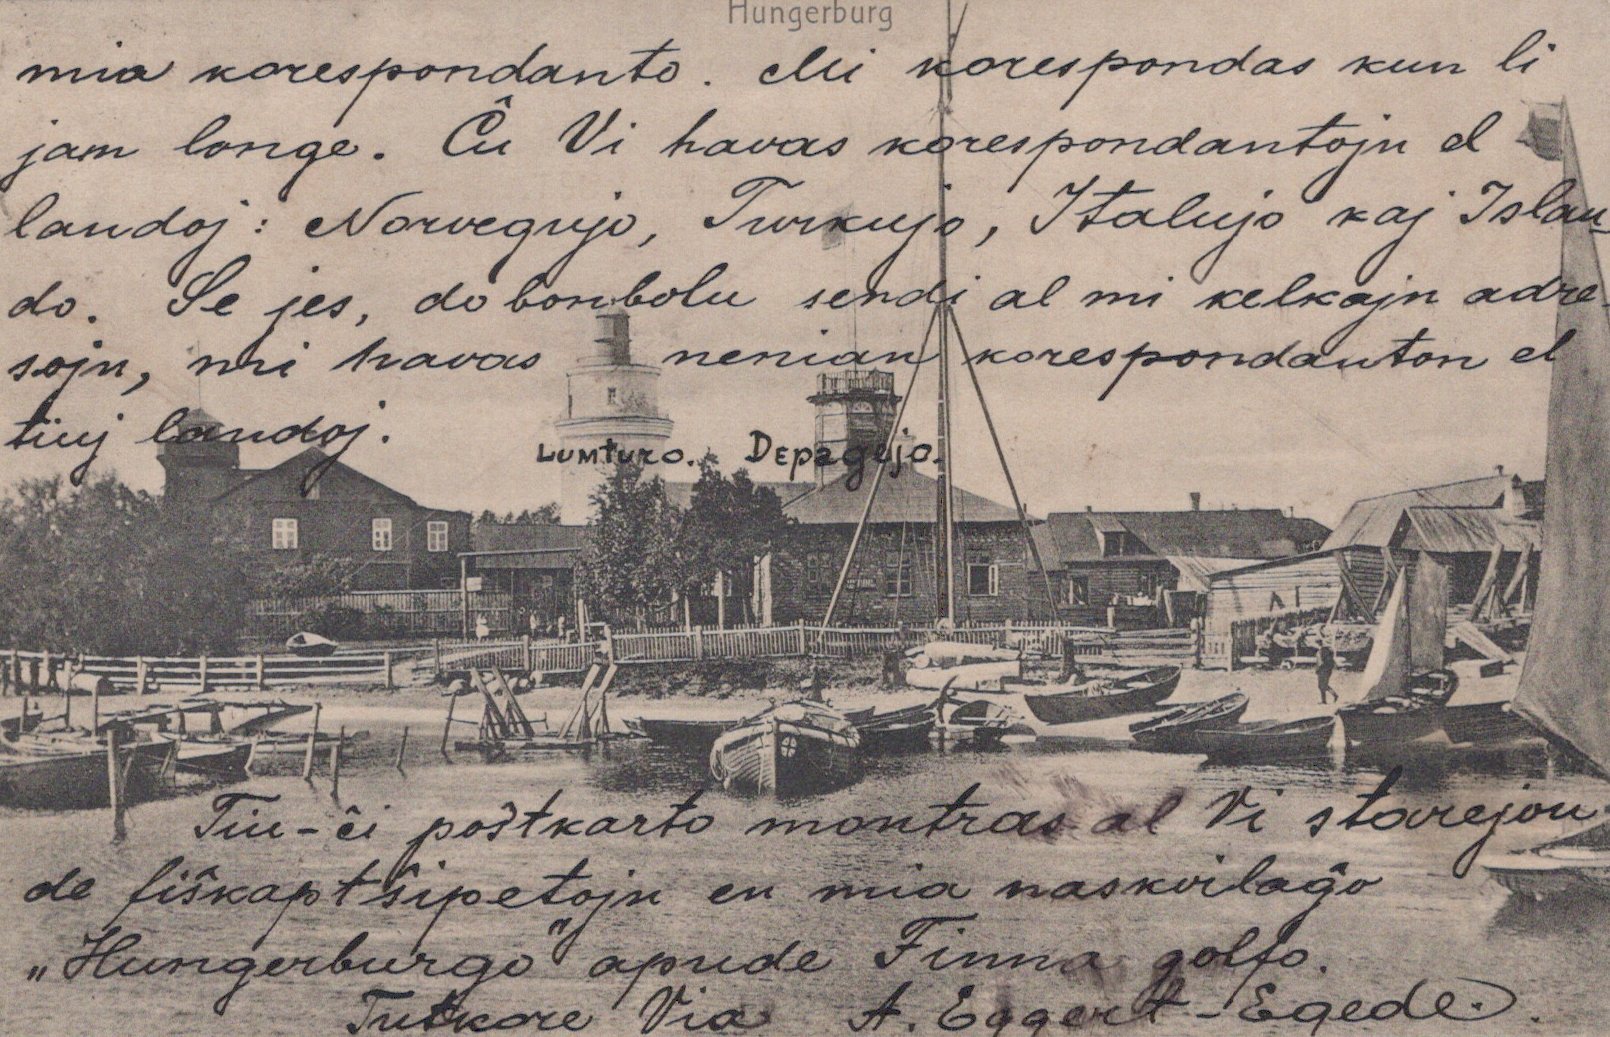 Hungerburg
mia korespondanto. Mi korespondas kun li
jam longe. Ĉu Vi havas korespondantojn el
landoj: Norvegujo, Turkujo, Italujo kaj Islan-
do. Se jes, do bonbolu sendi al mi kelkajn adre-
sojn, mi havas nenian korespondanton el
tiuj landoj.
LUMTURO. DEPAGEJO.
Tiu-ĉi poŝtkarto montras al Vi starejon
de fiŝkaptŝipetojn en mia naskvilaĝo
„Hungerburgo" apude Finna golfo.
Tutkore Via A. Eggert-Egede.